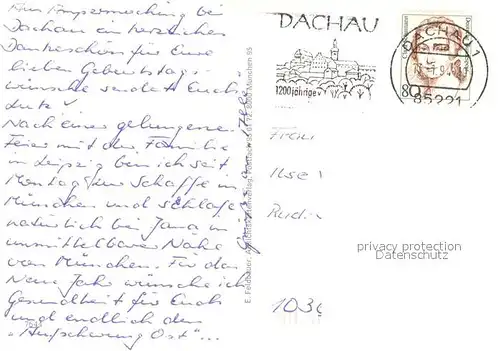 Aus Ampermoching bei
Dachau ein herzliches
Dankeschön für Eure
lieben Geburtstags-
wünsche sendet Euch
Lutz
Nach einer gelungenen
Feier mit der Familie
in Leipzig bin ich seit
Montag zur Schaffe in
München und schlafe
natürlich bei Jana in
unmittelbarer Nähe
von München. Für das
Neue Jahr wünsche ich
Gesundheit für Euch
und endlich den
"Aufschwung Ost"...
7541
DACHAU
1200jährige
DACHAU 1
85221
80
Frau
Ilse
1036
privacy protection
Datenschutz